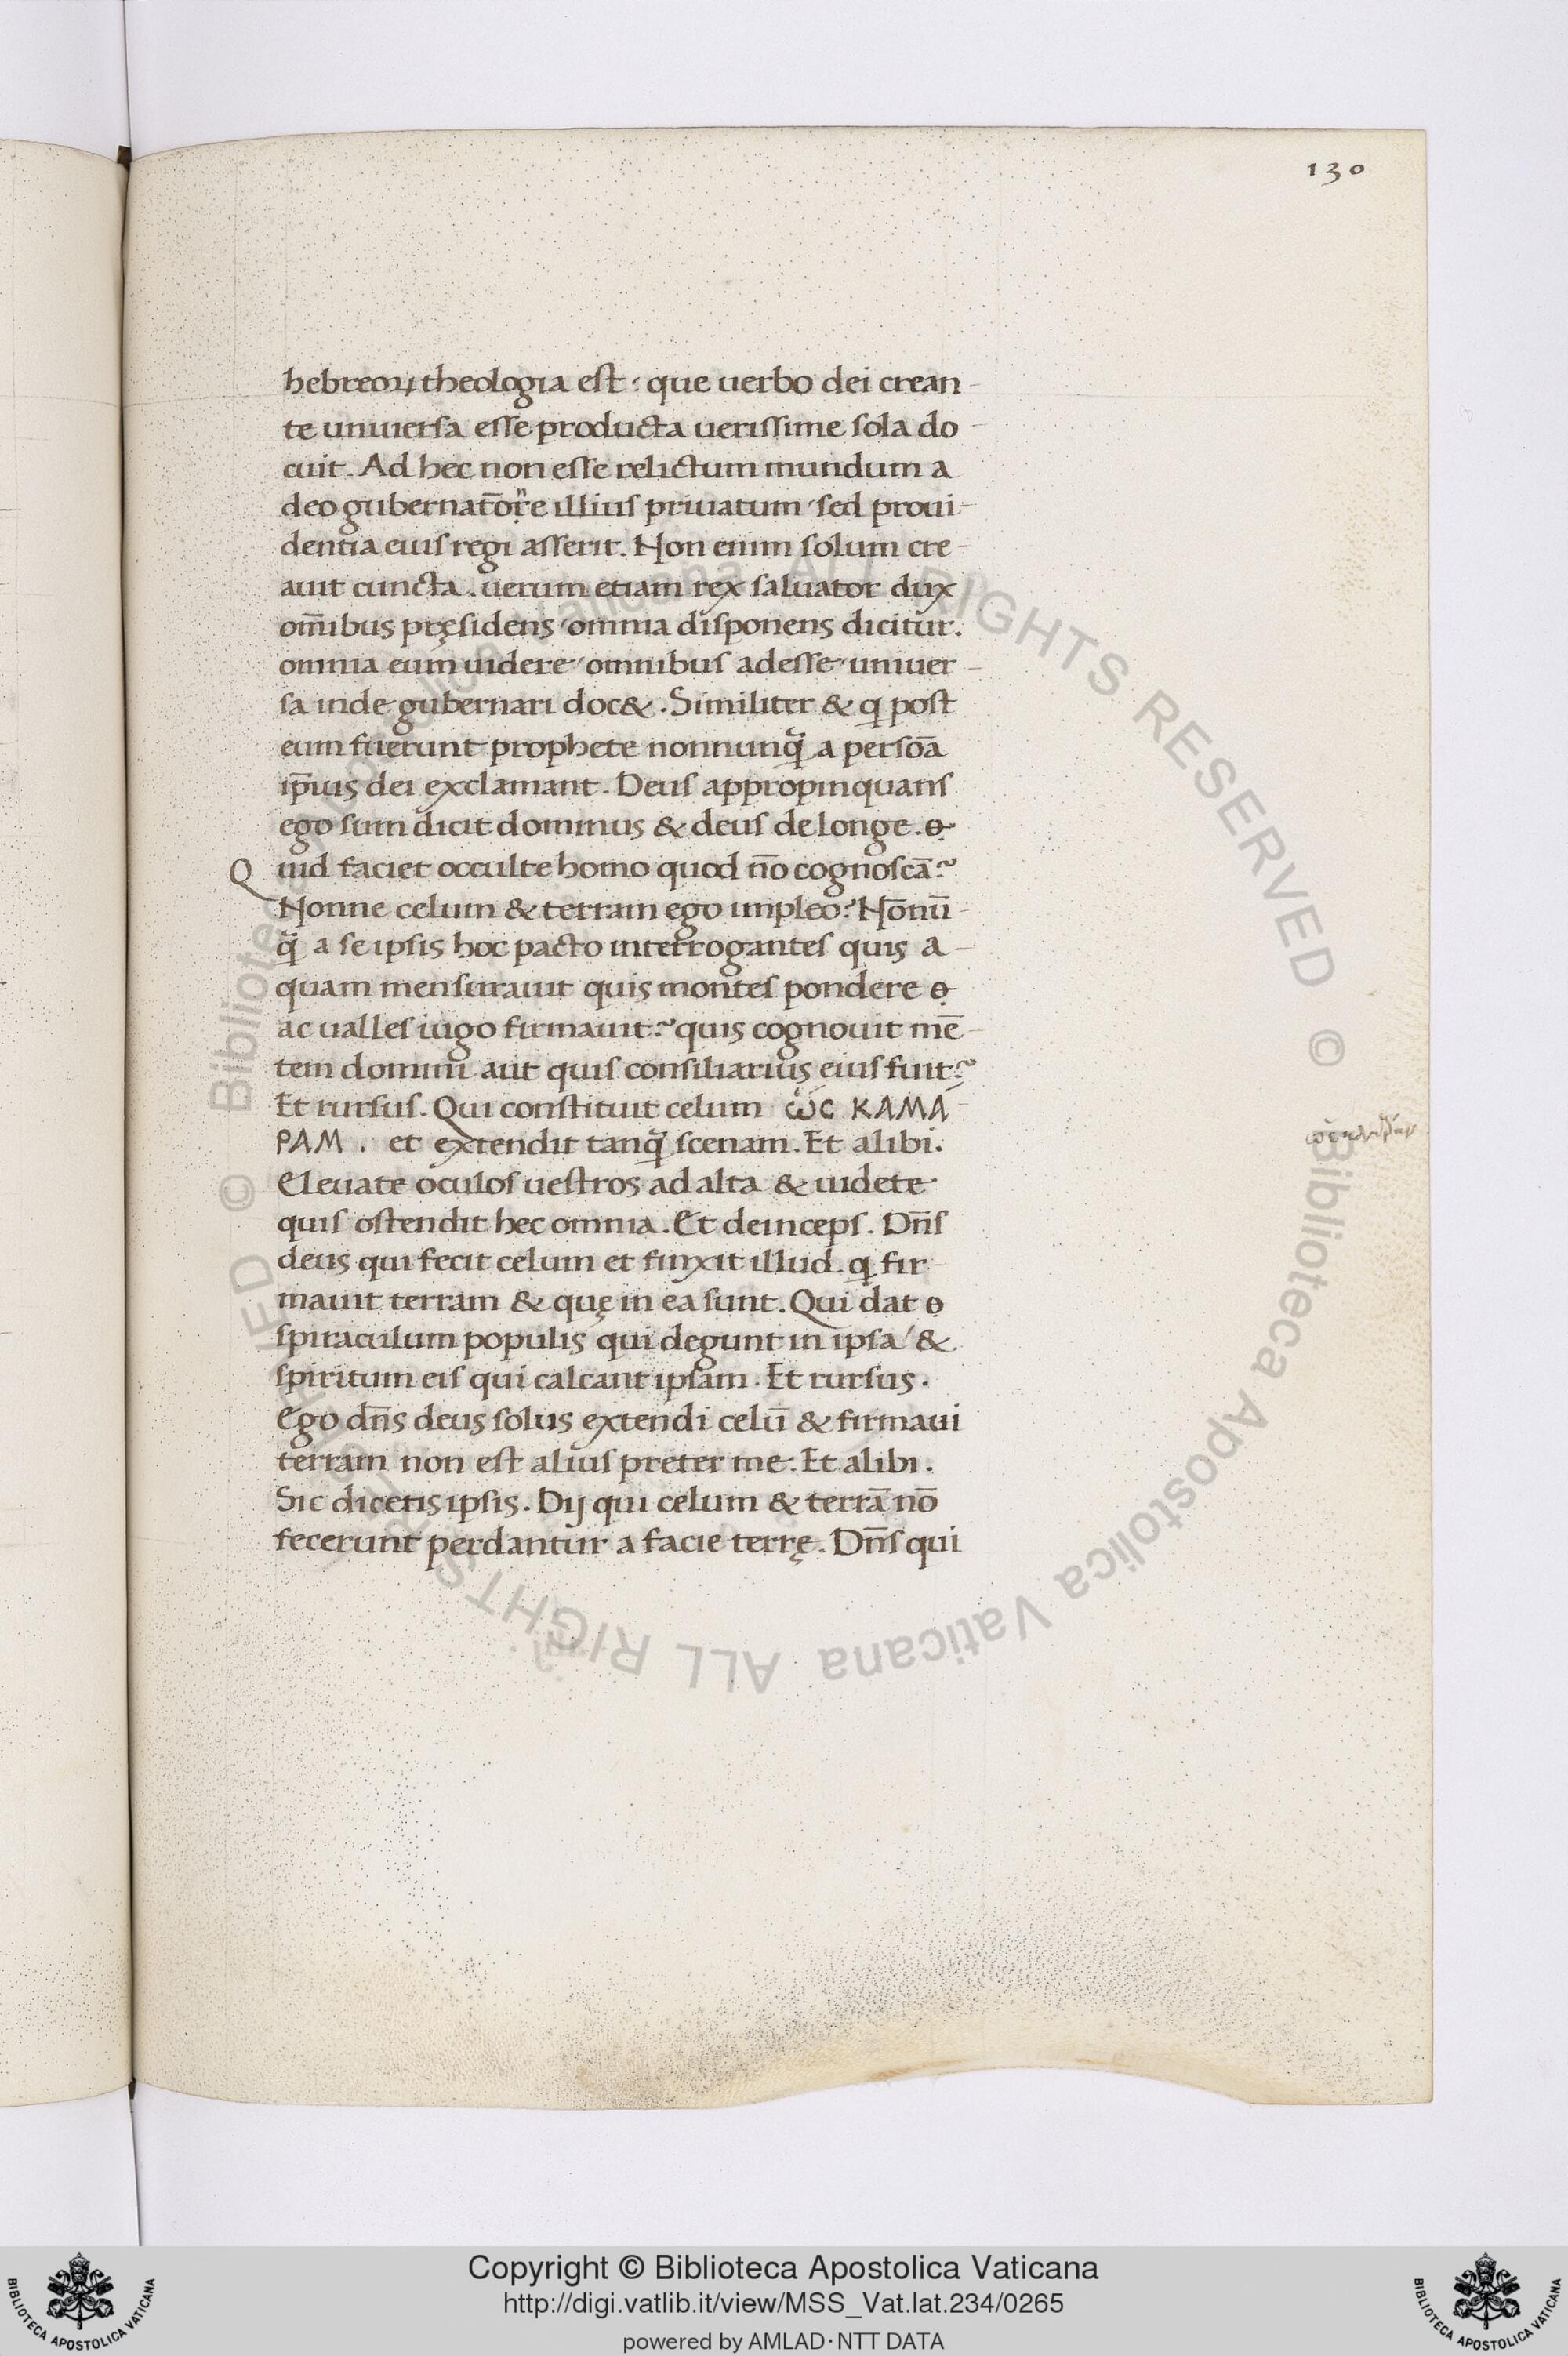 130
hebreoꝝ theologia est: que uerbo dei crean-
te uniuersa esse producta uerissime sola do-
cuit. Ad hec non esse relictum mundum a
deo gubernatōr̈e illius priuatum sed proui-
dentia eius regi asserit. Non enim solum cre-
auit cuncta. uerum etiam rex saluator dux
om̄ibus pręsidens omnia disponens dicitur.
omnia eum uidere omnibus adesse uniuer-
sa inde gubernari doc&. Similiter & q post
eum fuerunt prophete nonnunq̃ a persōa
ip̄ius dei exclamant. Deus appropinquans
ego sum dicit dominus & deus de longe.
Quid faciet occulte homo quod nō cognoscā?
Nonne celum & terram ego impleo? Nōnū-
q̃ a se ipsis hoc pacto interrogantes quis a-
quam mensurauit quis montes pondere
ac ualles iugo firmauit? quis cognouit mē-
tem domini aut quis consiliarius eius fuit?
Et rursus. Qui constituit celum ὡς ΚΑΜΑ-
ΡΑΜ. et extendit tanq̃ scenam. Et alibi.
Eleuate oculos uestros ad alta & uidete
quis ostendit hec omnia. Et deinceps. Dn̄s
deus qui fecit celum et finxit illud. q fir-
mauit terram & quę in ea sunt. Qui dat
spiraculum populis qui degunt in ipsa &
spiritum eis qui calcant ipsam. Et rursus.
Ego dn̄s deus solus extendi celū & firmaui
terram non est alius preter me. Et alibi.
Sic dicetis ipsis. Dij qui celum & terrā nō
fecerunt perdantur a facie terrę. Dn̄s qui
© Biblioteca Apostolica Vaticana ALL RIGHTS RESERVED
© Biblioteca Apostolica Vaticana ALL RIGHTS RESERVED
Copyright © Biblioteca Apostolica Vaticana
http://digi.vatlib.it/view/MSS_Vat.lat.234/0265
powered by AMLAD·NTT DATA
BIBLIOTECA APOSTOLICA VATICANA
BIBLIOTECA APOSTOLICA VATICANA